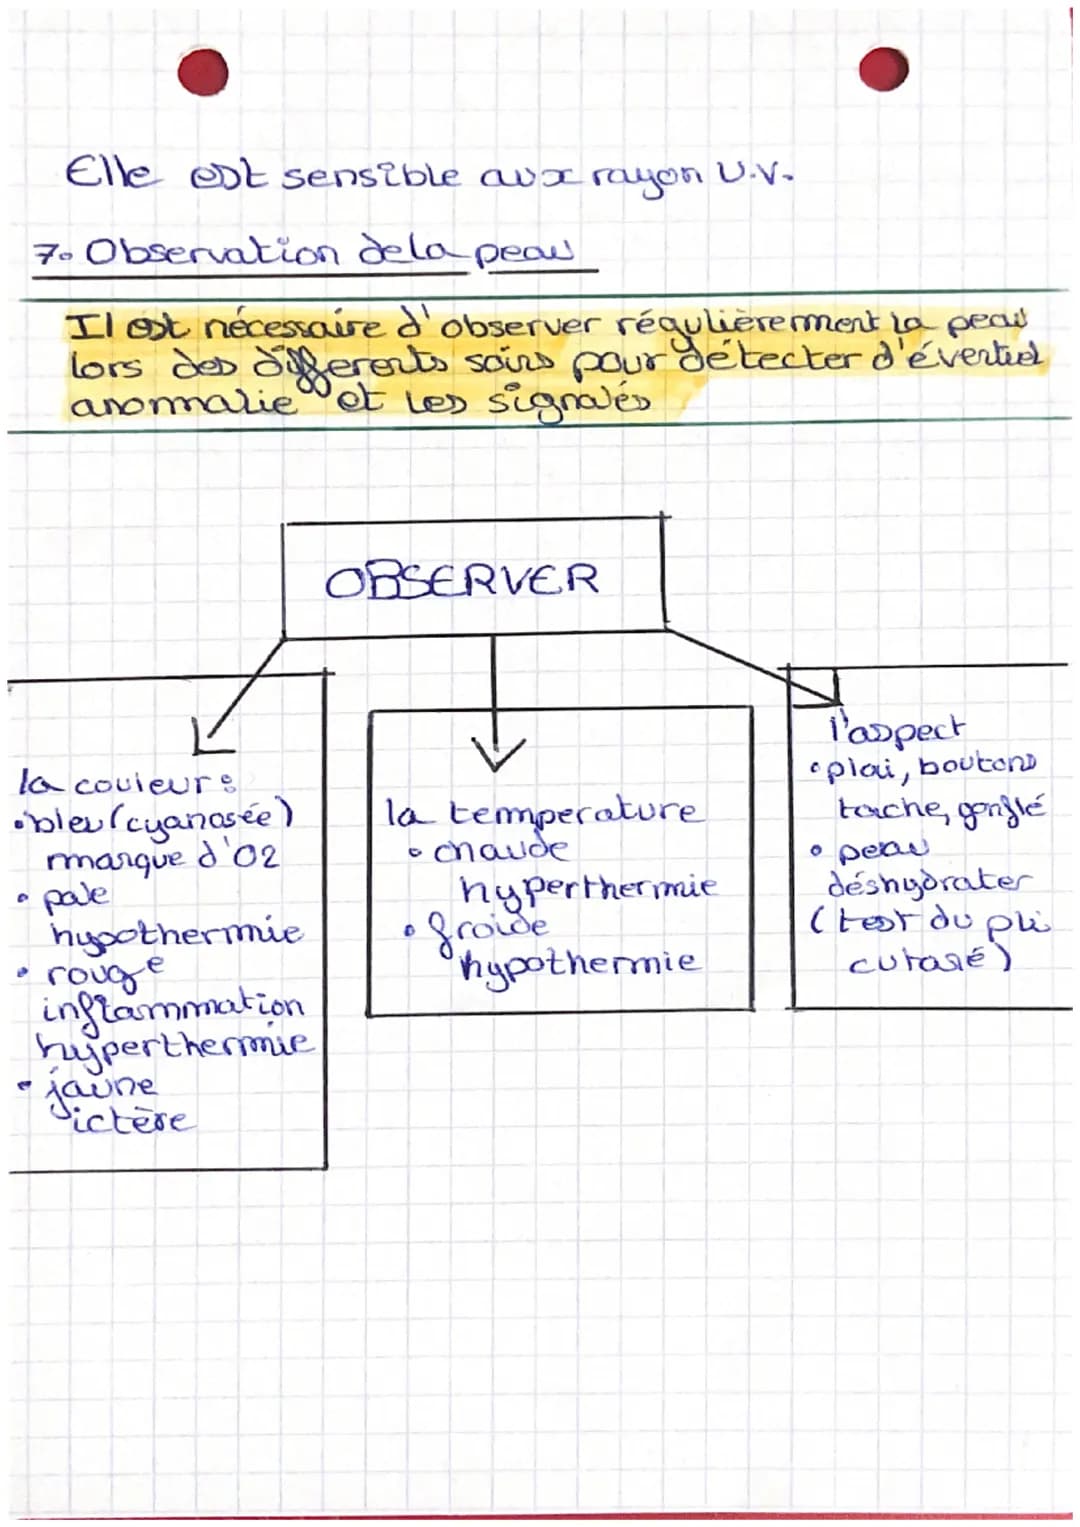 Elle est sensible aux rayon U.V.
7. Observation de la peau
Il est nécessaire d'observer régulièrement la peau
lors des différents soins pour détecter d'éventuel
anommalie et les signalés
OBSERVER
la couleur :
• bleu (cyanosée)
manque d'O2
• pale
hypothermie
• rouge
inflammation
hyperthermie
• jaune
ictère
la température
• chaude
hyperthermie
• froide
hypothermie
l'aspect
• plai, boutons
tache, gonflé
• peau
déshydrater
(test du pli
cutané)